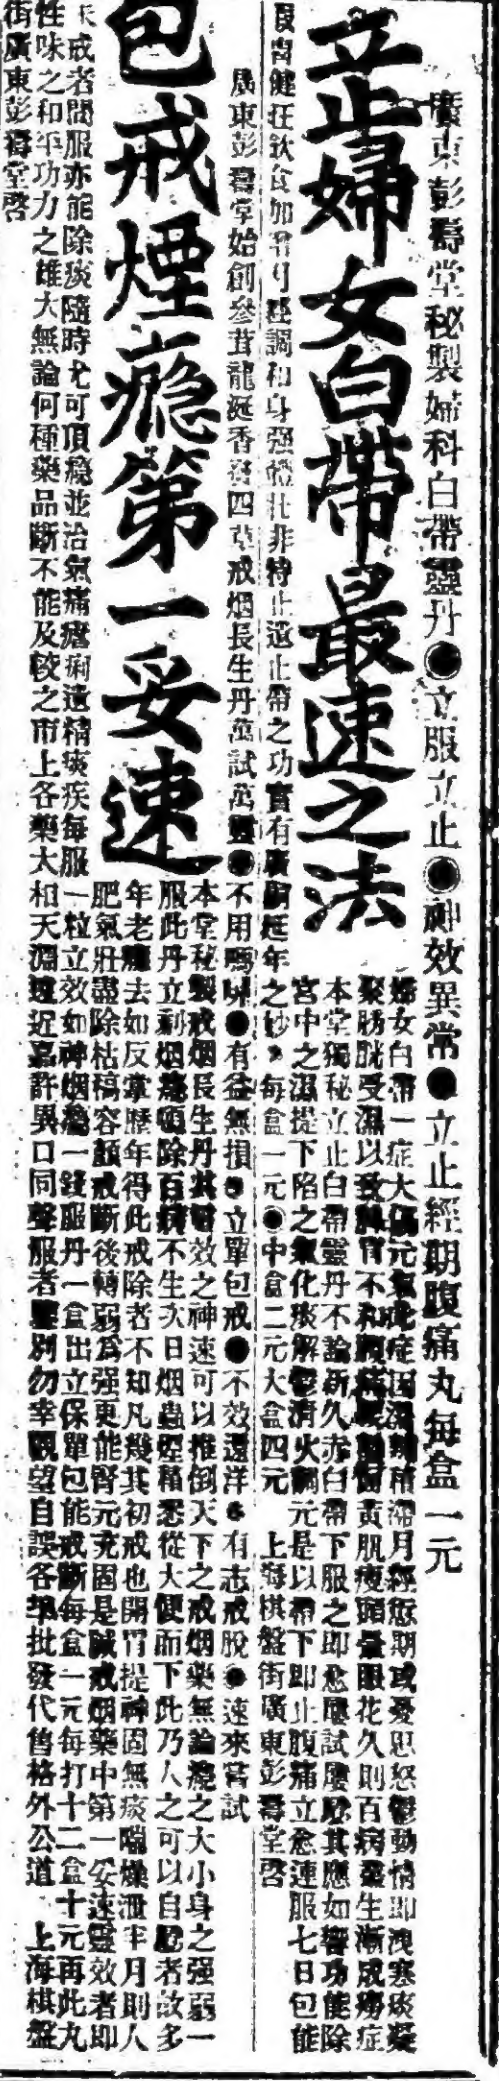 廣東彭壽堂秘製婦科白帶靈丹●立服立止●神效異常●立止經期腹痛丸每盒一元
立止婦女白帶最速之法
婦女白帶一症大傷元氣此症因濕熱積滯月經愆期或憂思怒鬱動情即洩寒痰凝
聚膀胱受濕以致脾胃不和腰痛面黃肌瘦頭暈眼花久則百病叢生漸成癆症
本堂獨秘立止白帶靈丹不論新久赤白帶下服之即愈屢試屢驗其應如響功能除
宮中之濕提下陷之氣化痰解鬱清火調元是以帶下即止腹痛立愈連服七日包能
胃健旺飲食加增月經調和身强體壯非特止遺止帶之功實有廣嗣延年之妙每盒一元●中盒二元大盒四元 上海棋盤街廣東彭壽堂啓
廣東彭壽堂始創參茸龍涎香戒烟長生丹萬試萬靈●不用嗎啡●有益無損●立單包戒●不效還洋●有志戒脫●速來嘗試
包戒煙癮第一妥速
本堂秘製戒烟長生丹其奇效之神速可以推倒天下之戒烟藥無論癮之大小身之强弱一
服此丹立刻烟癮頓除百病不生次日烟蟲煙積悉從大便而下此乃人之可以自驗者故多
年老癮去如反掌歷年得此戒除者不知凡幾其初戒也開胃提神固無痰喘燥洩半月則人
肥氣壯盡除枯槁容顏戒斷後轉弱爲强更能腎元充固是誠戒烟藥中第一妥速靈效者即
未戒者間服亦能除痰隨時尤可頂癮並治氣痛瘧痢遺精痰疾每服一粒立效如神烟癮一錢服丹一盒出立保單包能戒斷每盒一元每打十二盒十元再此丸
性味之和平功力之雄大無論何種藥品斷不能及較之市上各藥大相天淵遠近嘉許異口同聲服者鑒別勿幸觀望自誤各埠批發代售格外公道 上海棋盤
街廣東彭壽堂啓